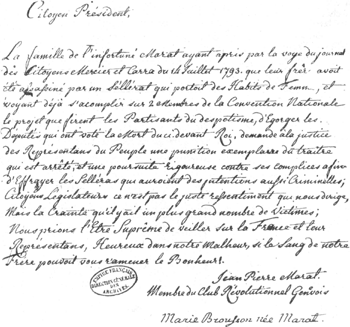 Citoyen Président,
La famille de l'infortuné Marat ayant apris par la voye du journal
des Citoyens Mercier et Carra du 14 Juillet 1793. que leur frèr- avoit
été assassiné par un Sélérat qui portoit des Habits de Femm-, et
voyant déjà s'acomplir sur 2 Membres de la Convention Nationale
le projet que firent les Partisants du despotisme, d'Egorger les
Députés qui ont voté la Mort du ci-devant Roi, demande à la justice
des Représentans du Peuple une punition exemplaire du traitre
qui est arrêté, et une poursuite rigoureuse contre ses complices afin
d'Effrayer les Sélléras qui auroient des intentions aussi Criminelles;
Citoyens Législateurs ce n'est pas le juste ressentiment qui nous dirige,
Mais la Crainte qu'il y ait un plus grand nombre de Victimes;
Nous prions l'Etre Suprème de veiller sur la France et leur
Représentans, Heureux dans notre Malheur, si le Sang de notre
Frère pouvoit vous ramener le Bonheur!
Jean Pierre Marat.
Membre du Club Révolutionnel Genevois
Marie Brousson née Marat.
DIRECTION GÉNÉRALE
DES
ARCHIVES